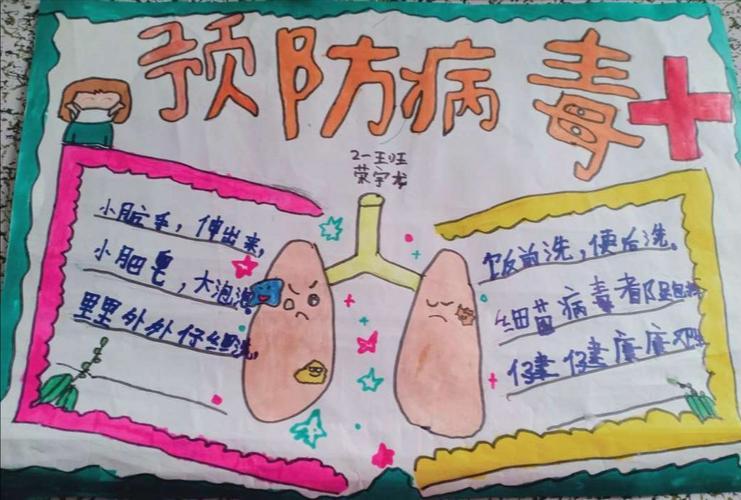 预防病毒
2一王旺
荣宇龙
小脏手，伸出来，
小肥皂，大泡泡
里里外外仔细洗，
饭前洗，便后洗。
细菌病毒都
健健康康